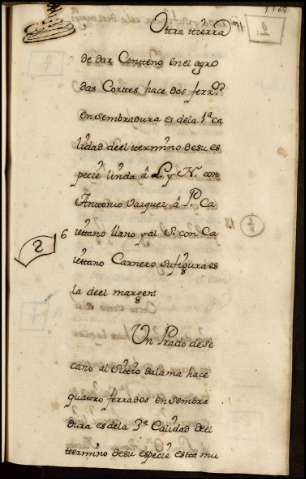 Ottra tierra
de dar Centeno en el agro
das Cortes hace dos ferrados
en sembradura es dela 1ª ca
lidad deel termino desu es
pecie linda á L. y N. con
Antonio Vazquez á P. Ca
6 iettano llano y al S. con Ca
iettano Carnero su figura es
la deel margen
Un Prado de se
cano al sittio dalama hace
quatro ferrados en sembra
dura es dela 3ª Calidad deel
termino desu especie esta mu